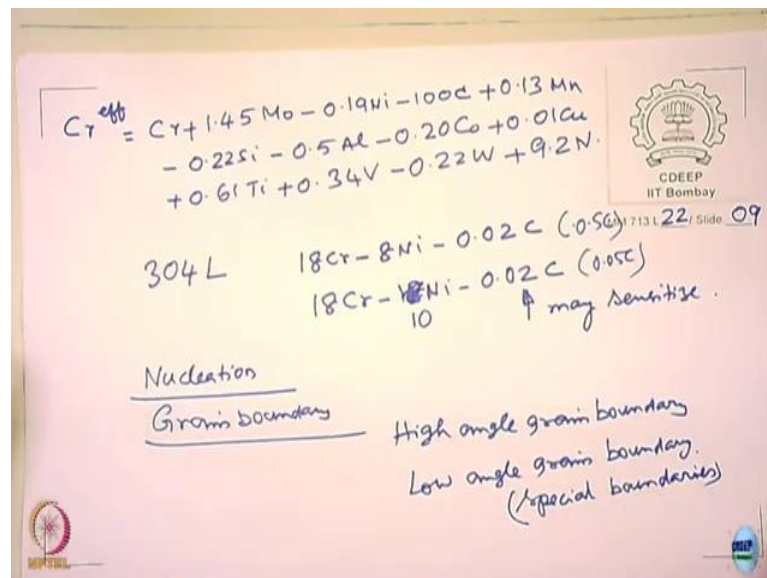 Cr^eff = Cr + 1.45 Mo - 0.19Ni - 100C + 0.13 Mn
- 0.22Si - 0.5 Al - 0.20Co + 0.01Cu
+ 0.61 Ti + 0.34V - 0.22W + 9.2N.
CDEEP
IIT Bombay
713 L 22 / Slide 09
304 L
18Cr - 8Ni - 0.02 C (0.5C)
18Cr - Ni - 0.02 C (0.05C)
10
↑ may sensitize.
Nucleation
Grain boundary
High angle grain boundary
Low angle grain boundary.
(special boundaries)
NPTEL
CDEEP